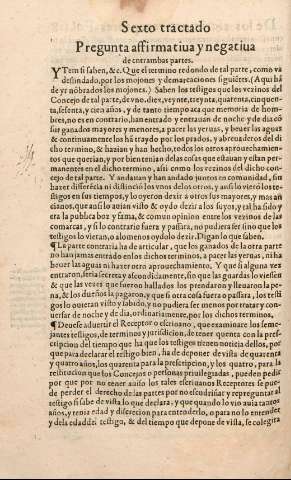 Sexto tractado
Pregunta affirmatiua y negatiua
de entrambas partes.
YTem si saben, &c. Que el termino redondo de tal parte, como va
deslindado, por los mojones y demarcaciones siguiẽtes. (Aqui há
de yr nõbrados los mojones.) Saben los testigos que los vezinos del
Concejo de tal parte, de vno, diez, veynte, treynta, quarenta, cinquẽ-
ta, sesenta, y cien años, y de tanto tiempo aca que memoria de hom-
bres, no es en contrario, han entrado y entrauan de noche y de dia cõ
sus ganados mayores y menores, a pacer las yeruas, y beuer las aguas
& continuamente los hã traydo por los prados, y abreuaderos del di
cho termino, & hazian y han hecho, todos los otros aprouechamien-
tos que querian, y por bien tenian de las cosas que estauan y estan per-
manentes en el dicho termino, assi como los vezinos del dicho con-
cejo de tal parte. Y andauan y han andado juntos en comunidad, sin
hazer differẽcia ni distinctiõ los vnos de los otros, y assi lo vierõ los te-
stigos en sus tiempos, y lo oyeron dezir a otros sus mayores, y mas an
cianos, que assi lo auian visto & oydo dezir a los suyos, y tal ha sido y
era la publica boz y fama, & comun opinion entre los vezinos de las
comarcas, y si lo contrario fuera y passira, no pudiera ser sino que los
testigos lo vieran, o alomenos oydo dezir. Digan lo que saben.
¶ La parte contraria ha de articular, que los ganados de la otra parte
no han jamas entrado en los dichos terminos, a pacer las yeruas, ni ha
beuer las aguas ni hazer otro aprouechamiento. Y que si alguna vez
entraron, seria secreta y ascondidamente, sin que las guardas lo viessen
& que las vezes que fueron hallados los prendaron y lleuaron la pe-
na, & los dueños la pagaron, y que si otra cosa fuera o passara, los testi
gos lo oueran visto y sabido, y no pudiera ser menos por tratar y con-
uersar de noche y de dia, ordinariamente, por los dichos terminos.
¶ Deuese aduertir el Receptor o escriuano, que examinare los seme-
jantes testigos, de terminos y jurisdicion, de tener quenta con la pre-
scripcion del tiempo que ha que los testigos tienen noticia dellos, por
que para declarar el testigo bien, ha de deponer de vista de quarenta
y quatro años, los quarenta para la prescripcion, y los quatro, para la
restitucion que los Concejos o personas priuilegiadas, pueden pedir
por que por no tener auiso los tales escriuanos Receptores se pue-
de perder el derecho de las partes por no escudriñar y repreguntar al
testigo si sabe de vista lo que declara, y que quando lo vio auia tantos
años, y tenia edad y discrecion para entenderlo, o para no lo entender
y dela edad del testigo, & del tiempo que depone de vista, se colegira